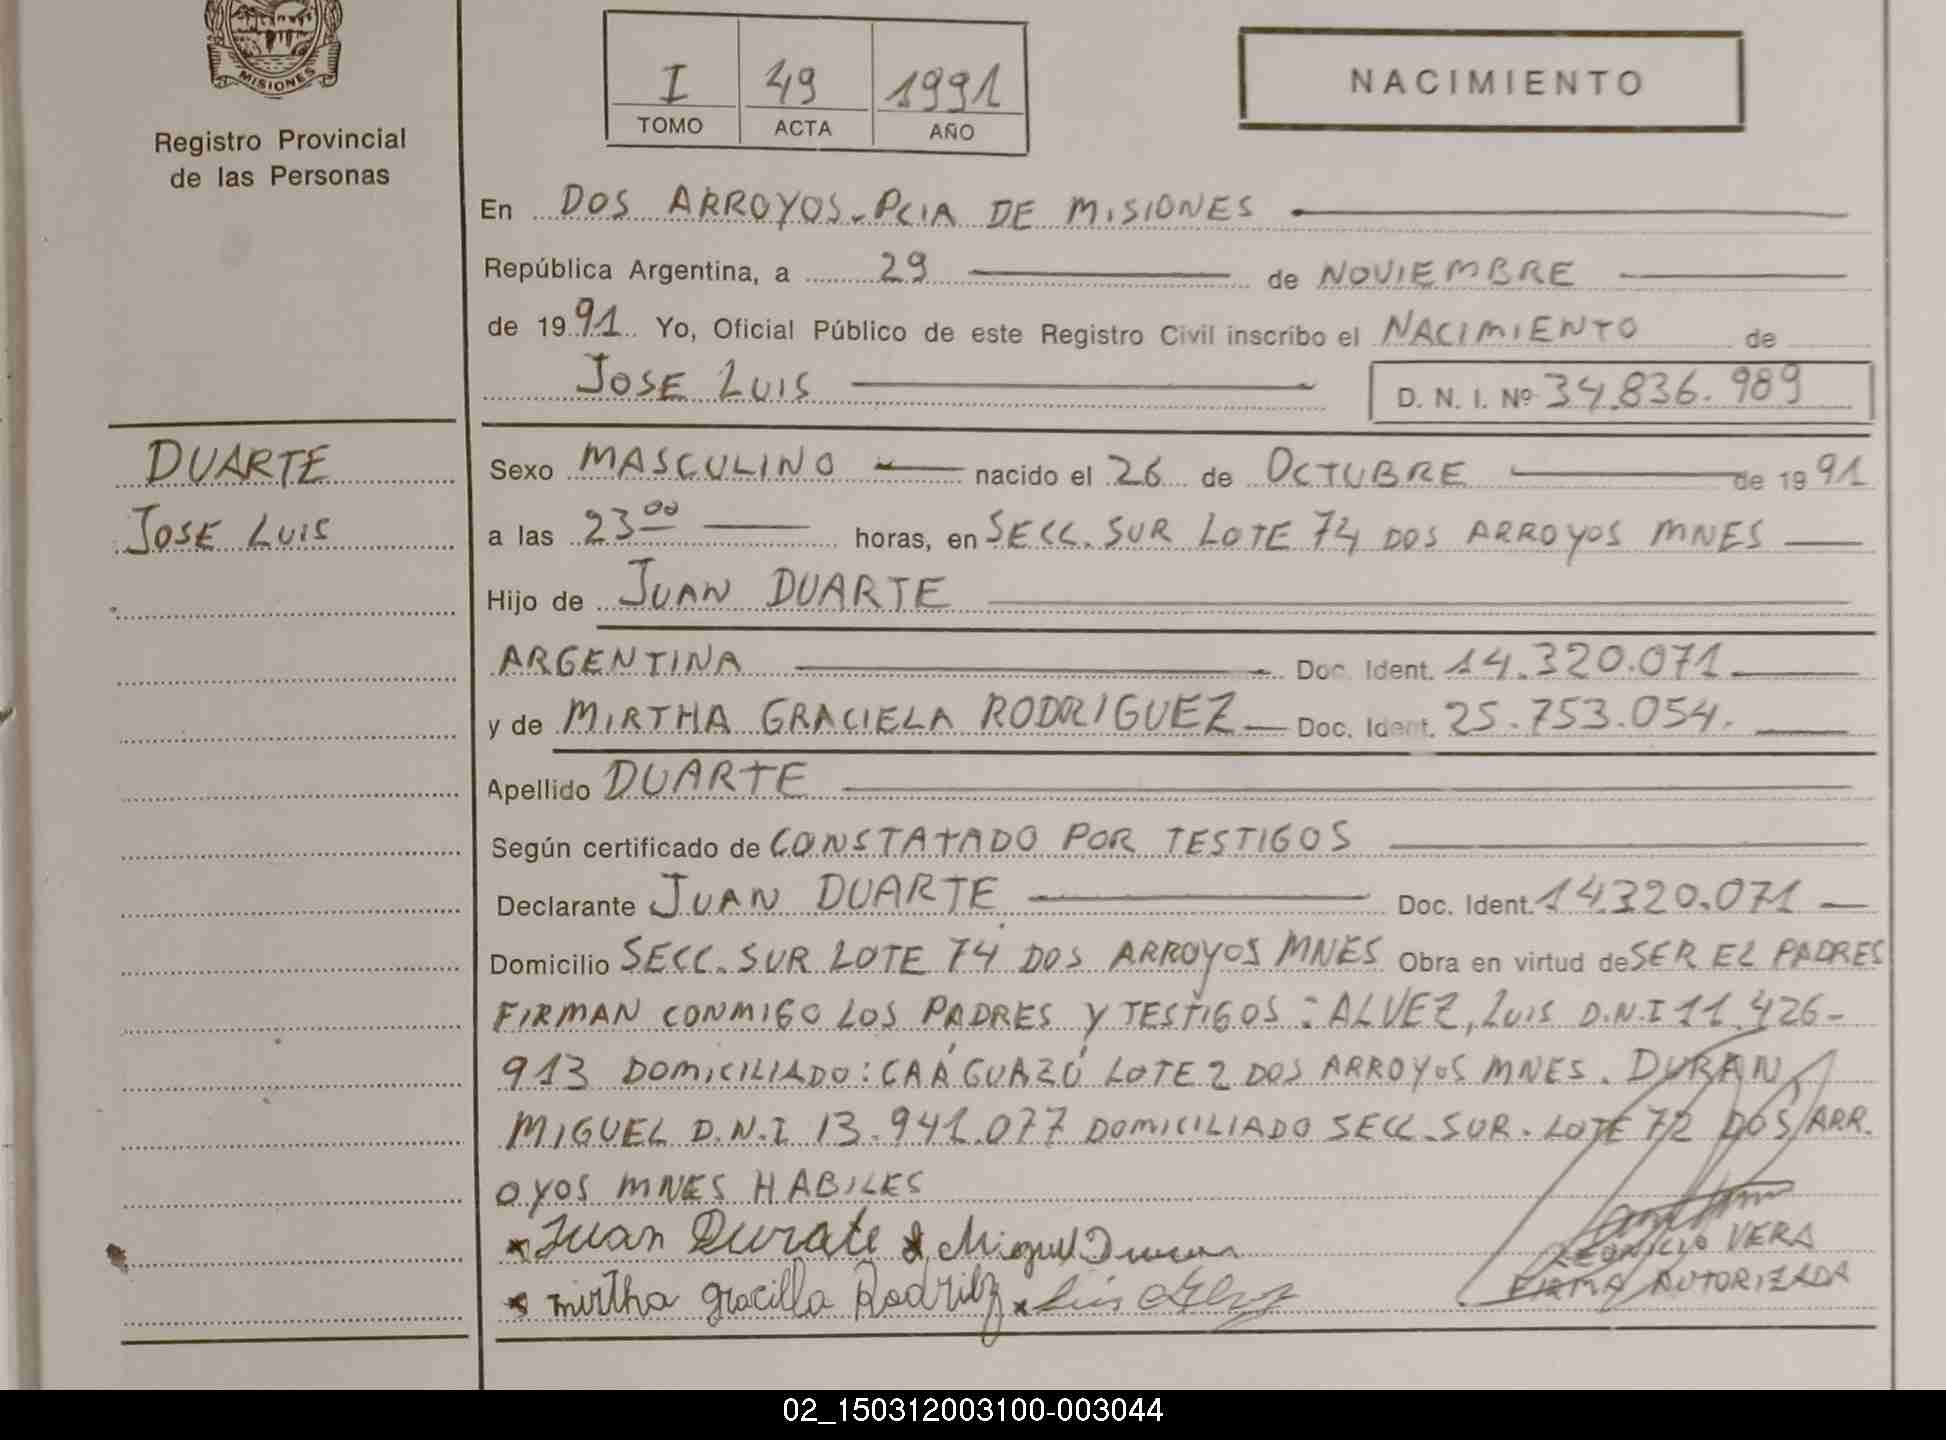 MISIONES
Registro Provincial
de las Personas
I 49 1991
TOMO ACTA AÑO
NACIMIENTO
En DOS ARROYOS. PCIA DE MISIONES
República Argentina, a 29 de NOVIEMBRE
de 1991 Yo, Oficial Público de este Registro Civil inscribo el NACIMIENTO de
JOSE LUIS D. N. I. Nº 34.836.989
DUARTE
JOSE LUIS
Sexo MASCULINO nacido el 26 de OCTUBRE de 1991
a las 23 00 horas, en SECC. SUR LOTE 74 DOS ARROYOS MNES
Hijo de JUAN DUARTE
ARGENTINA Doc. Ident. 14.320.071
y de MIRTHA GRACIELA RODRIGUEZ Doc. Ident. 25.753.054.
Apellido DUARTE
Según certificado de CONSTATADO POR TESTIGOS
Declarante JUAN DUARTE Doc. Ident. 14.320.071
Domicilio SECC. SUR LOTE 74 DOS ARROYOS MNES Obra en virtud de SER EL PADRES
FIRMAN CONMIGO LOS PADRES Y TESTIGOS: ALVEZ, LUIS D.N.I 11.426-
913 DOMICILIADO: CAÁGUAZÚ LOTE 2 DOS ARROYOS MNES. DURAN
MIGUEL D.N.I 13.941.077 DOMICILIADO SECC. SUR. LOTE 72 DOS ARR.
OYOS MNES HABILES
Juan Durate Miguel
mirtha gracilla Rodrilz Luis
VERA
FIRMA AUTORIZADA
02_150312003100-003044